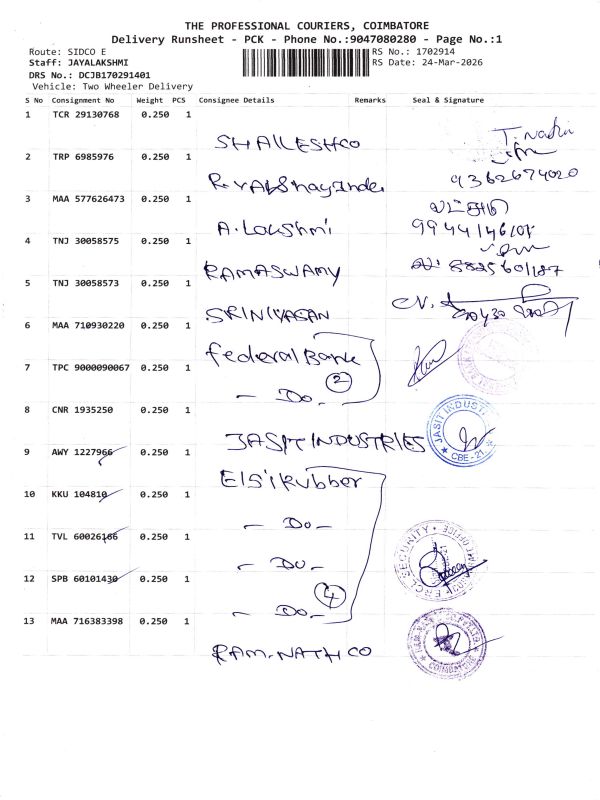 THE PROFESSIONAL COURIERS, COIMBATORE
Delivery Runsheet - PCK - Phone No.:9047080280 - Page No.:1
Route: SIDCO E
RS No.: 1702914
Staff: JAYALAKSHMI
RS Date: 24-Mar-2026
DRS No.: DCJB170291401
Vehicle: Two Wheeler Delivery
S No Consignment No Weight PCS Consignee Details Remarks Seal & Signature
1 TCR 29130768 0.250 1
SHAILESHCO
2 TRP 6985976 0.250 1
9362674020
3 MAA 577626473 0.250 1
A. Lakshmi
4 TNJ 30058575 0.250 1
RAMASWAMY
5 TNJ 30058573 0.250 1
SRINIVASAN
6 MAA 710930220 0.250 1
federal Bank
7 TPC 9000090067 0.250 1
- Do - 2
8 CNR 1935250 0.250 1
JASIT INDUSTRIES
JASIT INDUST
CBE - 21
9 AWY 1227966 0.250 1
Elsi Rubber
10 KKU 104810 0.250 1
- Do -
11 TVL 60026166 0.250 1
- Do -
SECURITY
12 SPB 60101430 0.250 1
- Do - 4
13 MAA 716383398 0.250 1
RAM-NATH CO
COIMBATORE